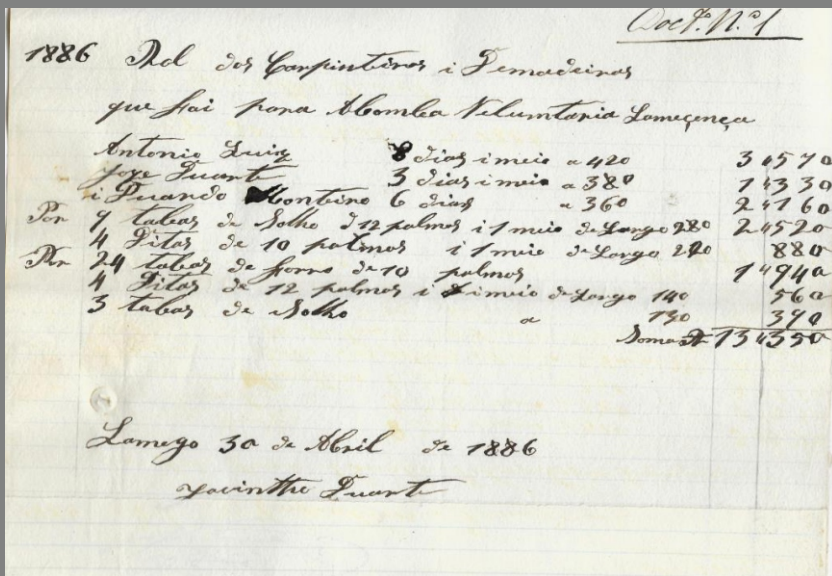 Doct.º N.º 1
1886 Rol dos Carpinteiros i Demadeiras
que foi para Abomba Veluntaria Lameçença
Antonio Luiz 8 dias i meio a 420 3"570
Joze Duarte 3 dias i meio a 380 1"330
i Duardo Monteiro 6 dias a 360 2"160
Por 9 tabas de Solho d 12 palmos i 1 meio de Largo 280 2"520
4 Ditas de 10 palmos i 1 meio de Largo 220 880
Por 24 tabas de forro de 10 palmos 1"940
4 Ditas de 12 palmos i meio de Largo 140 560
3 tabas de Solho a 130 390
Soma 13"350
Lamego 30 de Abril de 1886
Jacintho Duarte